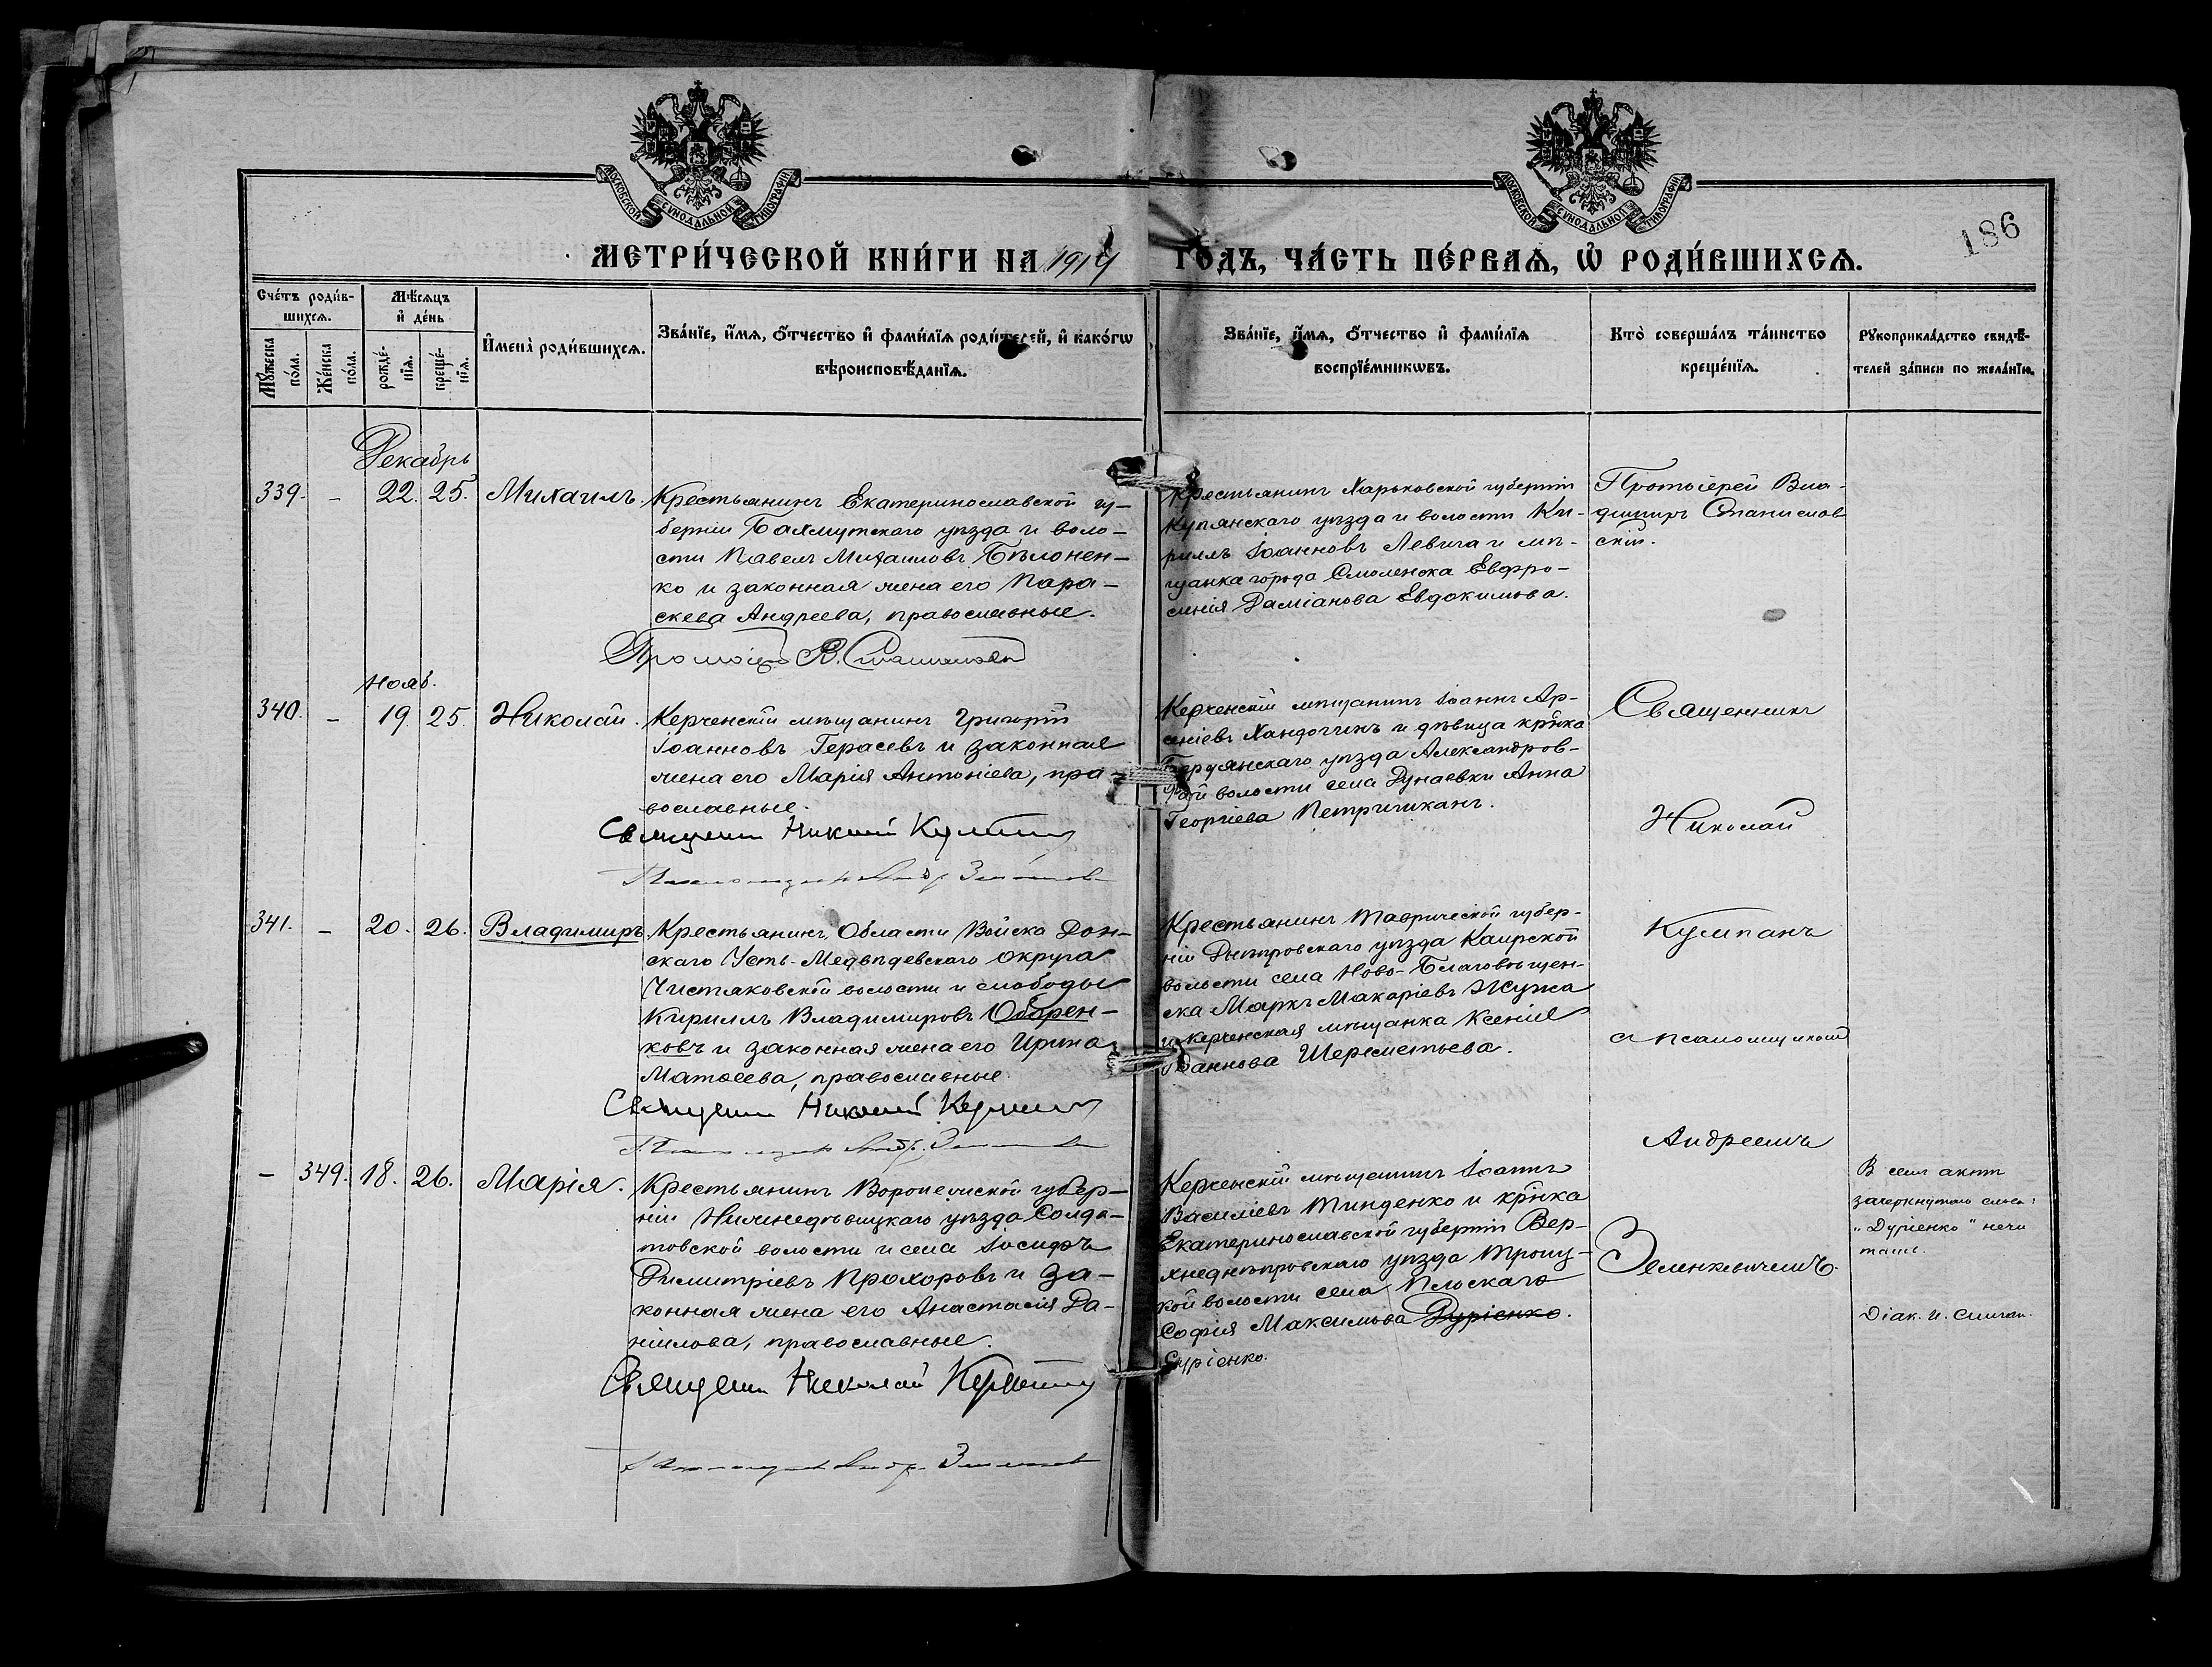 МОСКОВСКОЙ СѴНОДАЛЬНОЙ ТИПОГРАФІИ
МОСКОВСКОЙ СѴНОДАЛЬНОЙ ТИПОГРАФІИ
186
МЕТРИ́ЧЕСКОЙ КНИ́ГИ НА 1914
ГОДЪ, ЧА́СТЬ ПЕ́РВАѦ, Ѡ҆ РОДИ́ВШИХСѦ.
Сче́тъ роди́в-
шихсѧ.
Мꙋ́жеска по́ла.
Же́нска по́ла.
Мѣ́сѧцъ
и҆ де́нь
рожде́-
нїѧ.
креще́-
нїѧ.
И҆мена̀ роди́вшихсѧ.
Зва́нїе, и҆́мѧ, ѻ҆́тчество и҆ фами́лїѧ роди́телей, и҆ како́гѡ
вѣроисповѣ́данїѧ.
Зва́нїе, и҆́мѧ, ѻ҆́тчество и҆ фами́лїѧ
воспрїе́мникѡвъ.
Кто̀ соверша́лъ та́инство
креще́нїѧ.
Рꙋкоприкла́дство свидѣ́-
телей за́писи по жела́нїю.
Декабрь
339. - 22. 25. Михаилъ.
Крестьянинъ Екатеринославской гу-
берніи Бахмутскаго уѣзда и воло-
сти Павелъ Михаиловъ Бѣлонен-
ко и законная жена его Пара-
скева Андреева, православные.
Протоіер. В. Станиславск
Крестьянинъ Харьковской губерніи
Купянскаго уѣзда и волости Ки-
риллъ Іоанновъ Левича и мѣ-
щанка города Смоленска Евфро-
синія Даміанова Евдокимова.
Протоіерей Вла-
димиръ Станислав
скій.
Нояб.
340. - 19. 25. Николай.
Керченскій мѣщанинъ Григорій
Іоанновъ Герасевъ и законная
жена его Марія Антоніева, пра-
вославные.
Священ Николай Кумпан
Керченскій мѣщанинъ Іоаннъ Ар-
сеніевъ Хандогинъ и дѣвица кр-нка
Бердянскаго уѣзда Александров-
ской волости села Дунаевки Анна
Георгіева Петричиканъ.
Священникъ
Николай
341. - 20. 26. Владимиръ
Крестьянинъ Области Войска Дон-
скаго Усть-Медвѣдевскаго округа
Чистяковской волости и слободы
Кириллъ Владимировъ Обарен-
ковъ и законная жена его Ирина
Матѳеева, православные.
Священ Николай Кумпан
Крестьянинъ Таврической губер-
ніи Днѣпровскаго уѣзда Каирской
волости села Ново-Благовѣщен-
ска Маркъ Макаріевъ Жужа
и керченская мѣщанка Ксенія
Іоаннова Шереметьева.
Кумпанъ
с псаломщикомъ
Андреемъ
- 349. 18. 26. Марія.
Крестьянинъ Воронежской губер-
ніи Нижнедѣвицкаго уѣзда Солда-
товской волости и села Іосифъ
Димитріевъ Прохоровъ и за-
конная жена его Анастасія Да-
ніилова, православные.
Священ Николай Кумпан
Керченскій мѣщанинъ Іоаннъ
Василіевъ Тинденко и кр-нка
Екатеринославской губерніи Вер-
хнеднѣпровскаго уѣзда Троиц-
кой волости села Плоскаго
Софія Максимова Дуріенко.
Гуріенко.
Зеленкевичемъ.
В семъ актѣ
зачеркнутое слово:
„Дуріенко" нечи
тать.
Діак. И.